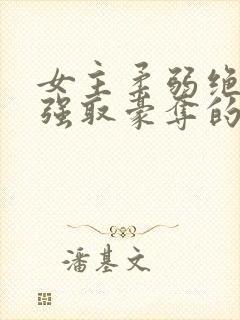 女主柔弱绝
强取豪夺的
潘基文